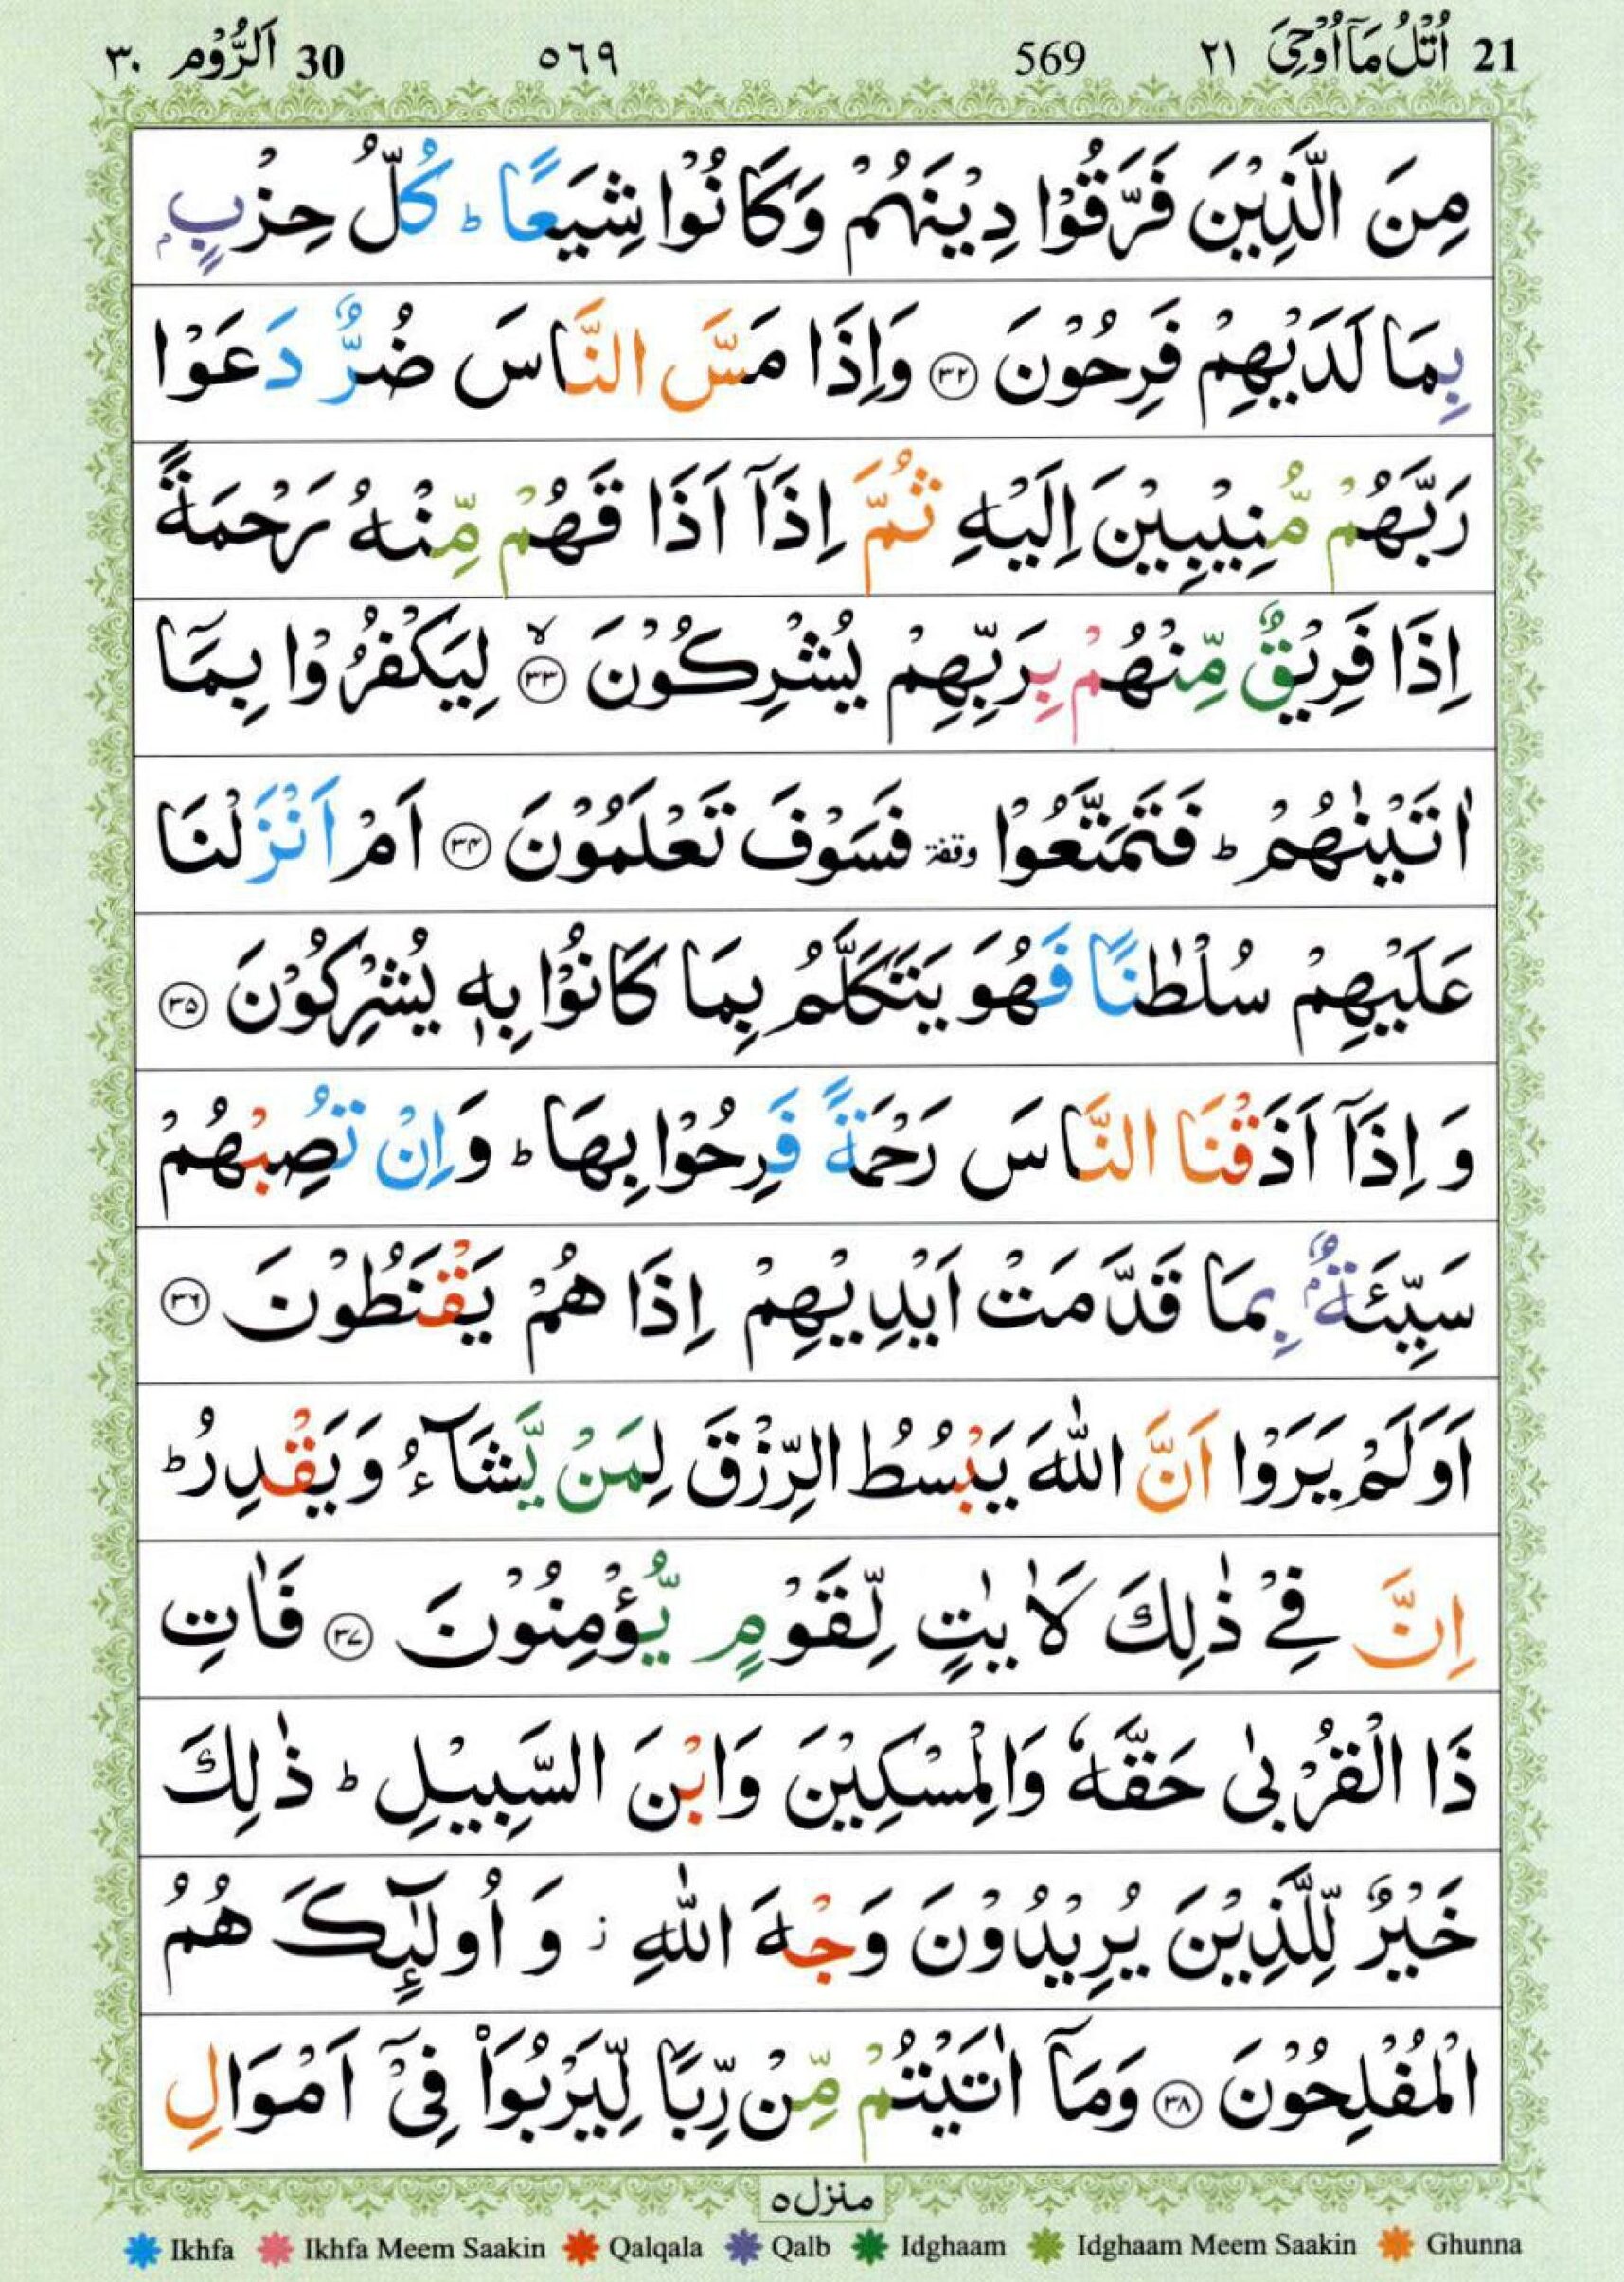 21 اُتْلُ مَآ اُوْحِىَ ٢١ 569 ٥٦٩ 30 اَلرُّوْم ٣٠
مِنَ الَّذِيْنَ فَرَّقُوْا دِيْنَهُمْ وَكَانُوْا شِيَعًا ؕ كُلُّ حِزْبٍۭ
بِمَا لَدَيْهِمْ فَرِحُوْنَ ۝۳۲ وَاِذَا مَسَّ النَّاسَ ضُرٌّ دَعَوْا
رَبَّهُمْ مُّنِيْبِيْنَ اِلَيْهِ ثُمَّ اِذَآ اَذَا قَهُمْ مِّنْهُ رَحْمَةً
اِذَا فَرِيْقٌ مِّنْهُمْ بِرَبِّهِمْ يُشْرِكُوْنَ ۝۳۳ۙ لِيَكْفُرُوْا بِمَآ
اٰتَيْنٰهُمْ ؕ فَتَمَتَّعُوْا وقفة فَسَوْفَ تَعْلَمُوْنَ ۝۳۴ اَمْ اَنْزَلْنَا
عَلَيْهِمْ سُلْطٰنًا فَهُوَ يَتَكَلَّمُ بِمَا كَانُوْا بِهٖ يُشْرِكُوْنَ ۝۳۵
وَاِذَآ اَذَقْنَا النَّاسَ رَحْمَةً فَرِحُوْا بِهَا ؕ وَاِنْ تُصِبْهُمْ
سَيِّئَةٌۢ بِمَا قَدَّمَتْ اَيْدِيْهِمْ اِذَا هُمْ يَقْنَطُوْنَ ۝۳۶
اَوَلَمْ يَرَوْا اَنَّ اللّٰهَ يَبْسُطُ الرِّزْقَ لِمَنْ يَّشَآءُ وَيَقْدِرُ ؕ
اِنَّ فِىْ ذٰلِكَ لَاٰيٰتٍ لِّقَوْمٍ يُّؤْمِنُوْنَ ۝۳۷ فَاٰتِ
ذَا الْقُرْبٰى حَقَّهٗ وَالْمِسْكِيْنَ وَابْنَ السَّبِيْلِ ؕ ذٰلِكَ
خَيْرٌ لِّلَّذِيْنَ يُرِيْدُوْنَ وَجْهَ اللّٰهِ ز وَ اُولٰٓئِكَ هُمُ
الْمُفْلِحُوْنَ ۝۳۸ وَمَآ اٰتَيْتُمْ مِّنْ رِّبًا لِّيَرْبُوَا۟ فِىْٓ اَمْوَالِ
منزل ٥
Ikhfa Ikhfa Meem Saakin Qalqala Qalb Idghaam Idghaam Meem Saakin Ghunna